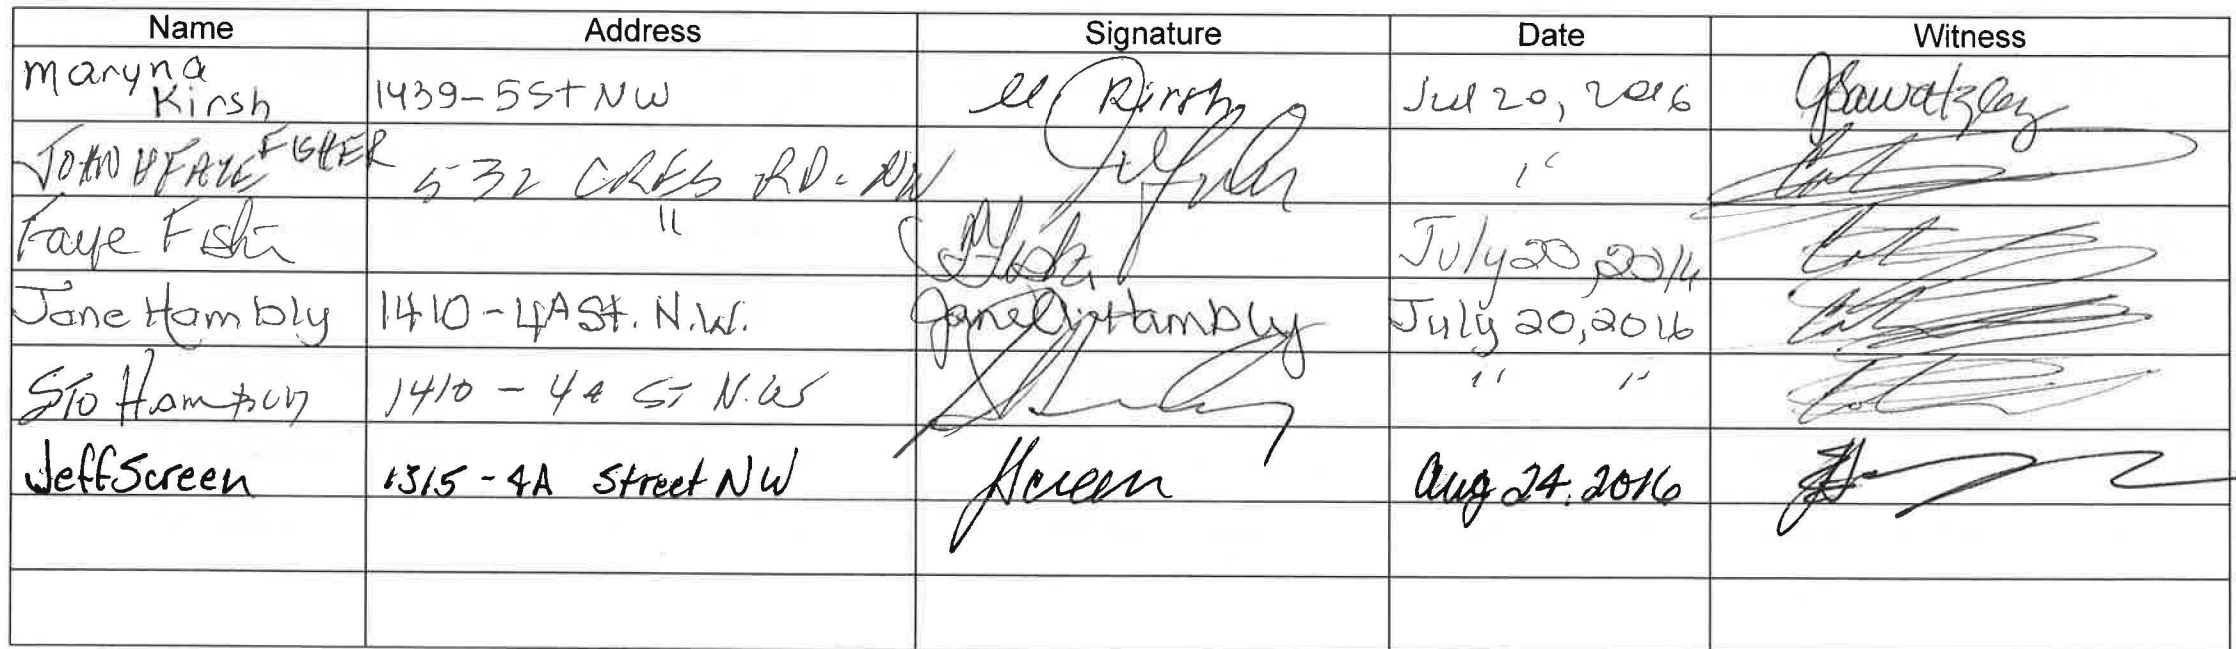 Name Address Signature Date Witness
Maryna
Kirsh 1439-5St NW M Kirsh Jul 20, 2016 GSawatzky
JOHN & FAYE FISHER 532 CRES RD. NW "
Faye " July 20, 2016
Jane Hambly 1410-4A St. N.W. Jane Hambly July 20, 2016
1410 - 4A ST N.W " "
Jeff Screen 1315-4A Street NW JScreen Aug 24. 2016